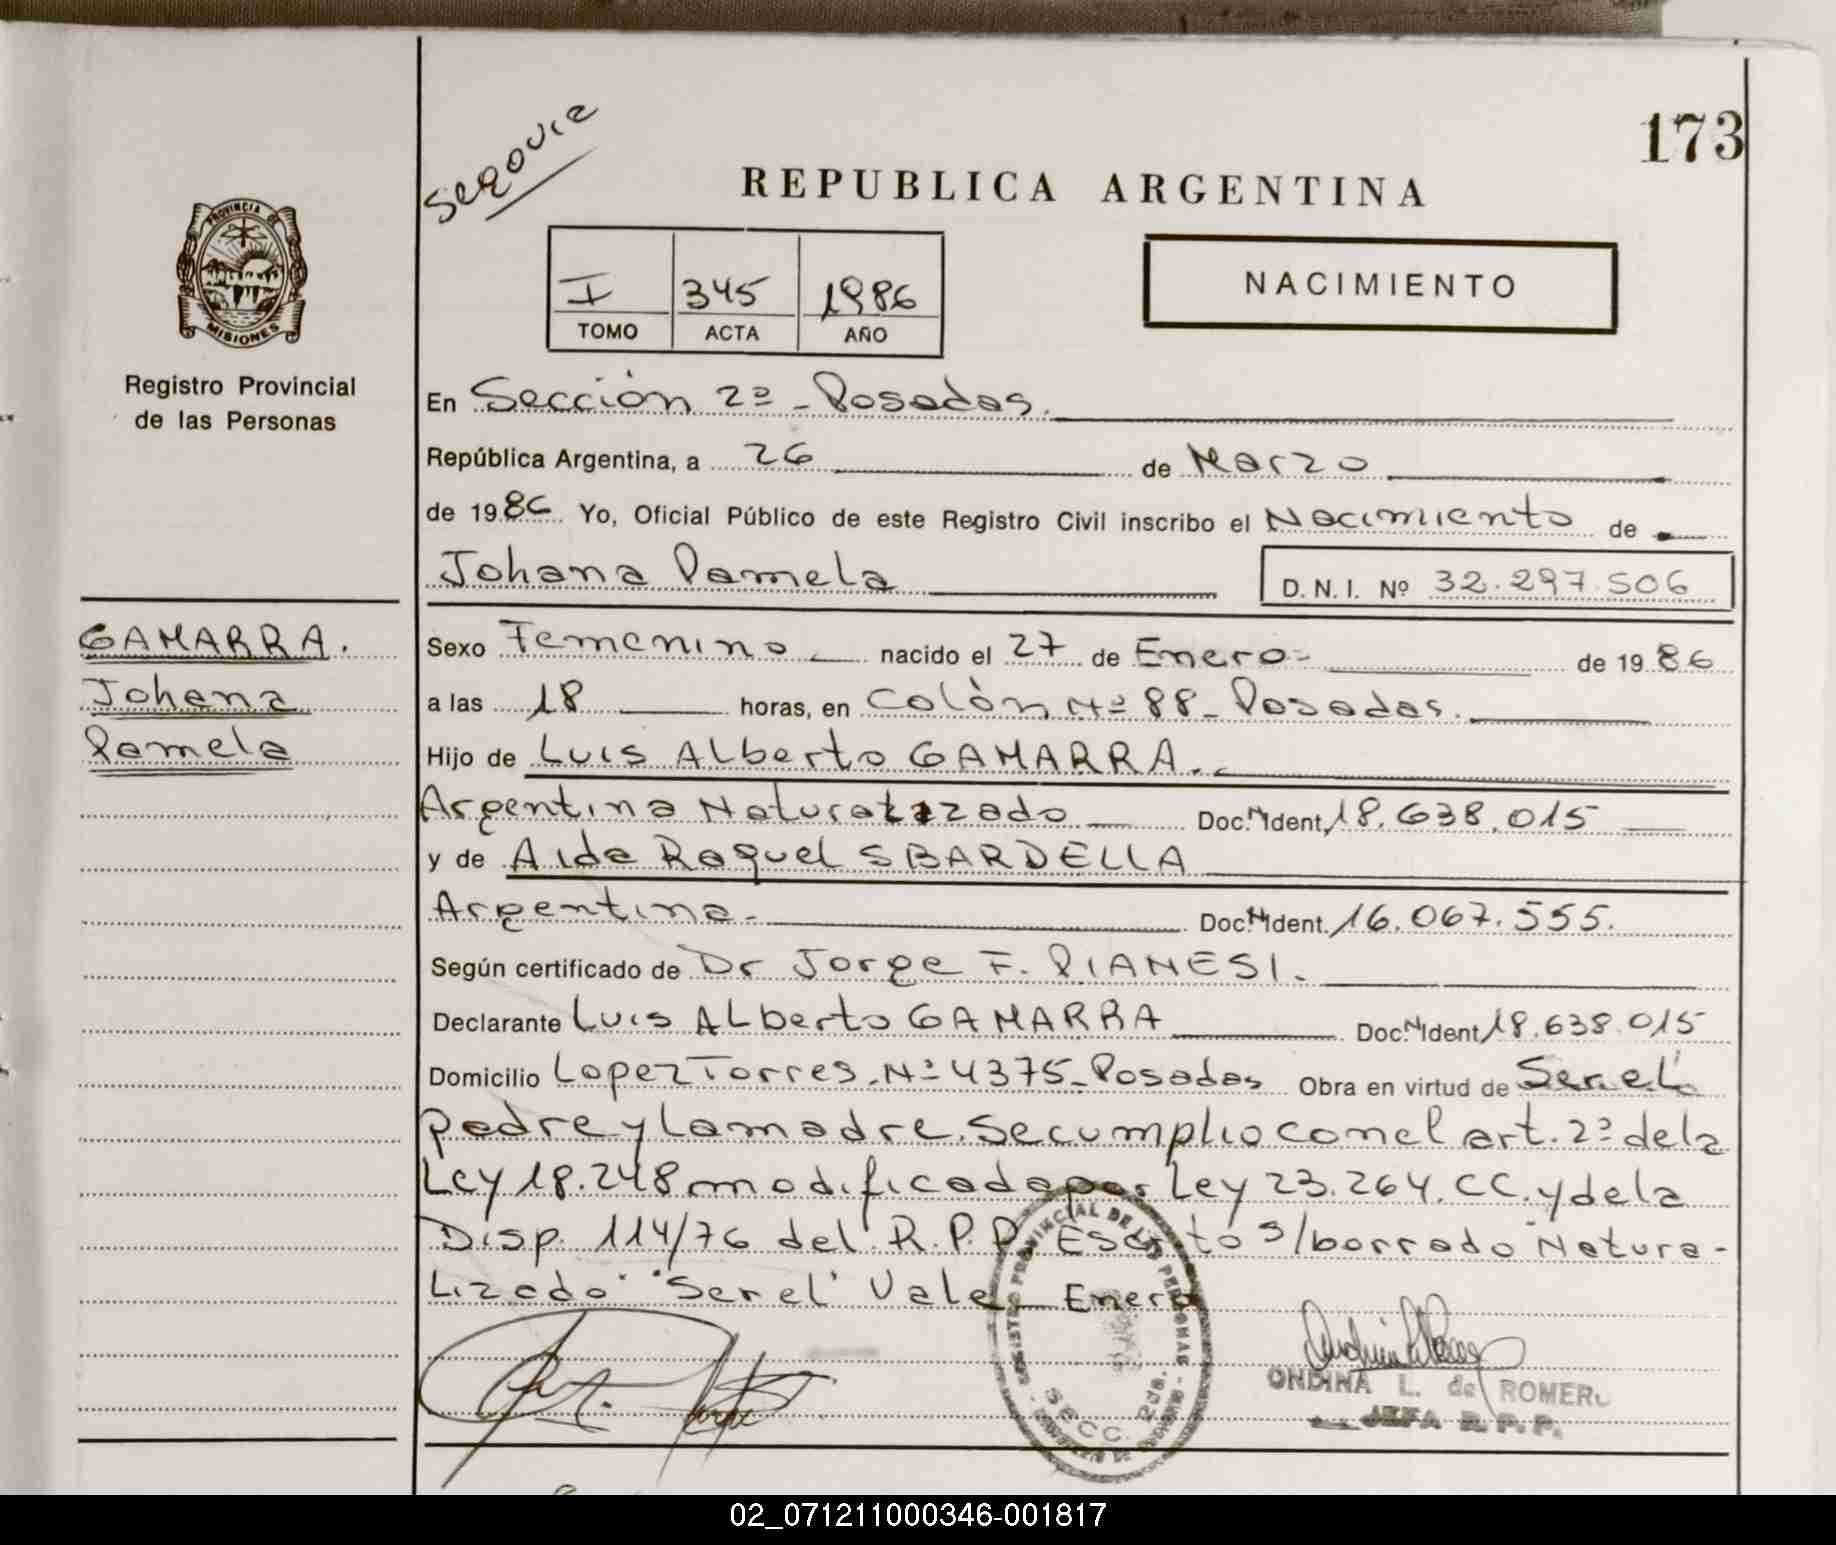 173
Segovia
REPUBLICA ARGENTINA
PROVINCIA DE
MISIONES
Registro Provincial
de las Personas
I 345 1986
TOMO ACTA AÑO
NACIMIENTO
En Sección 2º - Posadas.
República Argentina, a 26 de Marzo
de 1986 Yo, Oficial Público de este Registro Civil inscribo el Nacimiento de
Johana Pamela D. N. I. Nº 32.297.506
GAMARRA.
Johana
Pamela
Sexo Femenino nacido el 27 de Enero- de 1986
a las 18 horas, en Colón Nº 88- Posadas.
Hijo de Luis Alberto GAMARRA.
Argentina Naturalizado Doc. N Ident. 18.638.015
y de Aida Raquel SBARDELLA
Argentina. Doc. N Ident. 16.067.555.
Según certificado de Dr Jorge F. PIANESI.
Declarante Luis Alberto GAMARRA Doc. N Ident. 18.638.015
Domicilio Lopez Torres. Nº 4375- Posadas Obra en virtud de Ser el
padre y la madre. Se cumplio con el art. 2º de la
Ley 18.248 modificada por Ley 23.264. CC. y de la
Disp. 114/76 del R.P.P. Escrito s/borrado "Natura-
lizado" "Ser el" Vale Enero
REGISTRO PROVINCIAL DE LAS PERSONAS
SECC. 2da.
ONDINA L. de ROMERO
JEFA R.P.P.
02_071211000346-001817